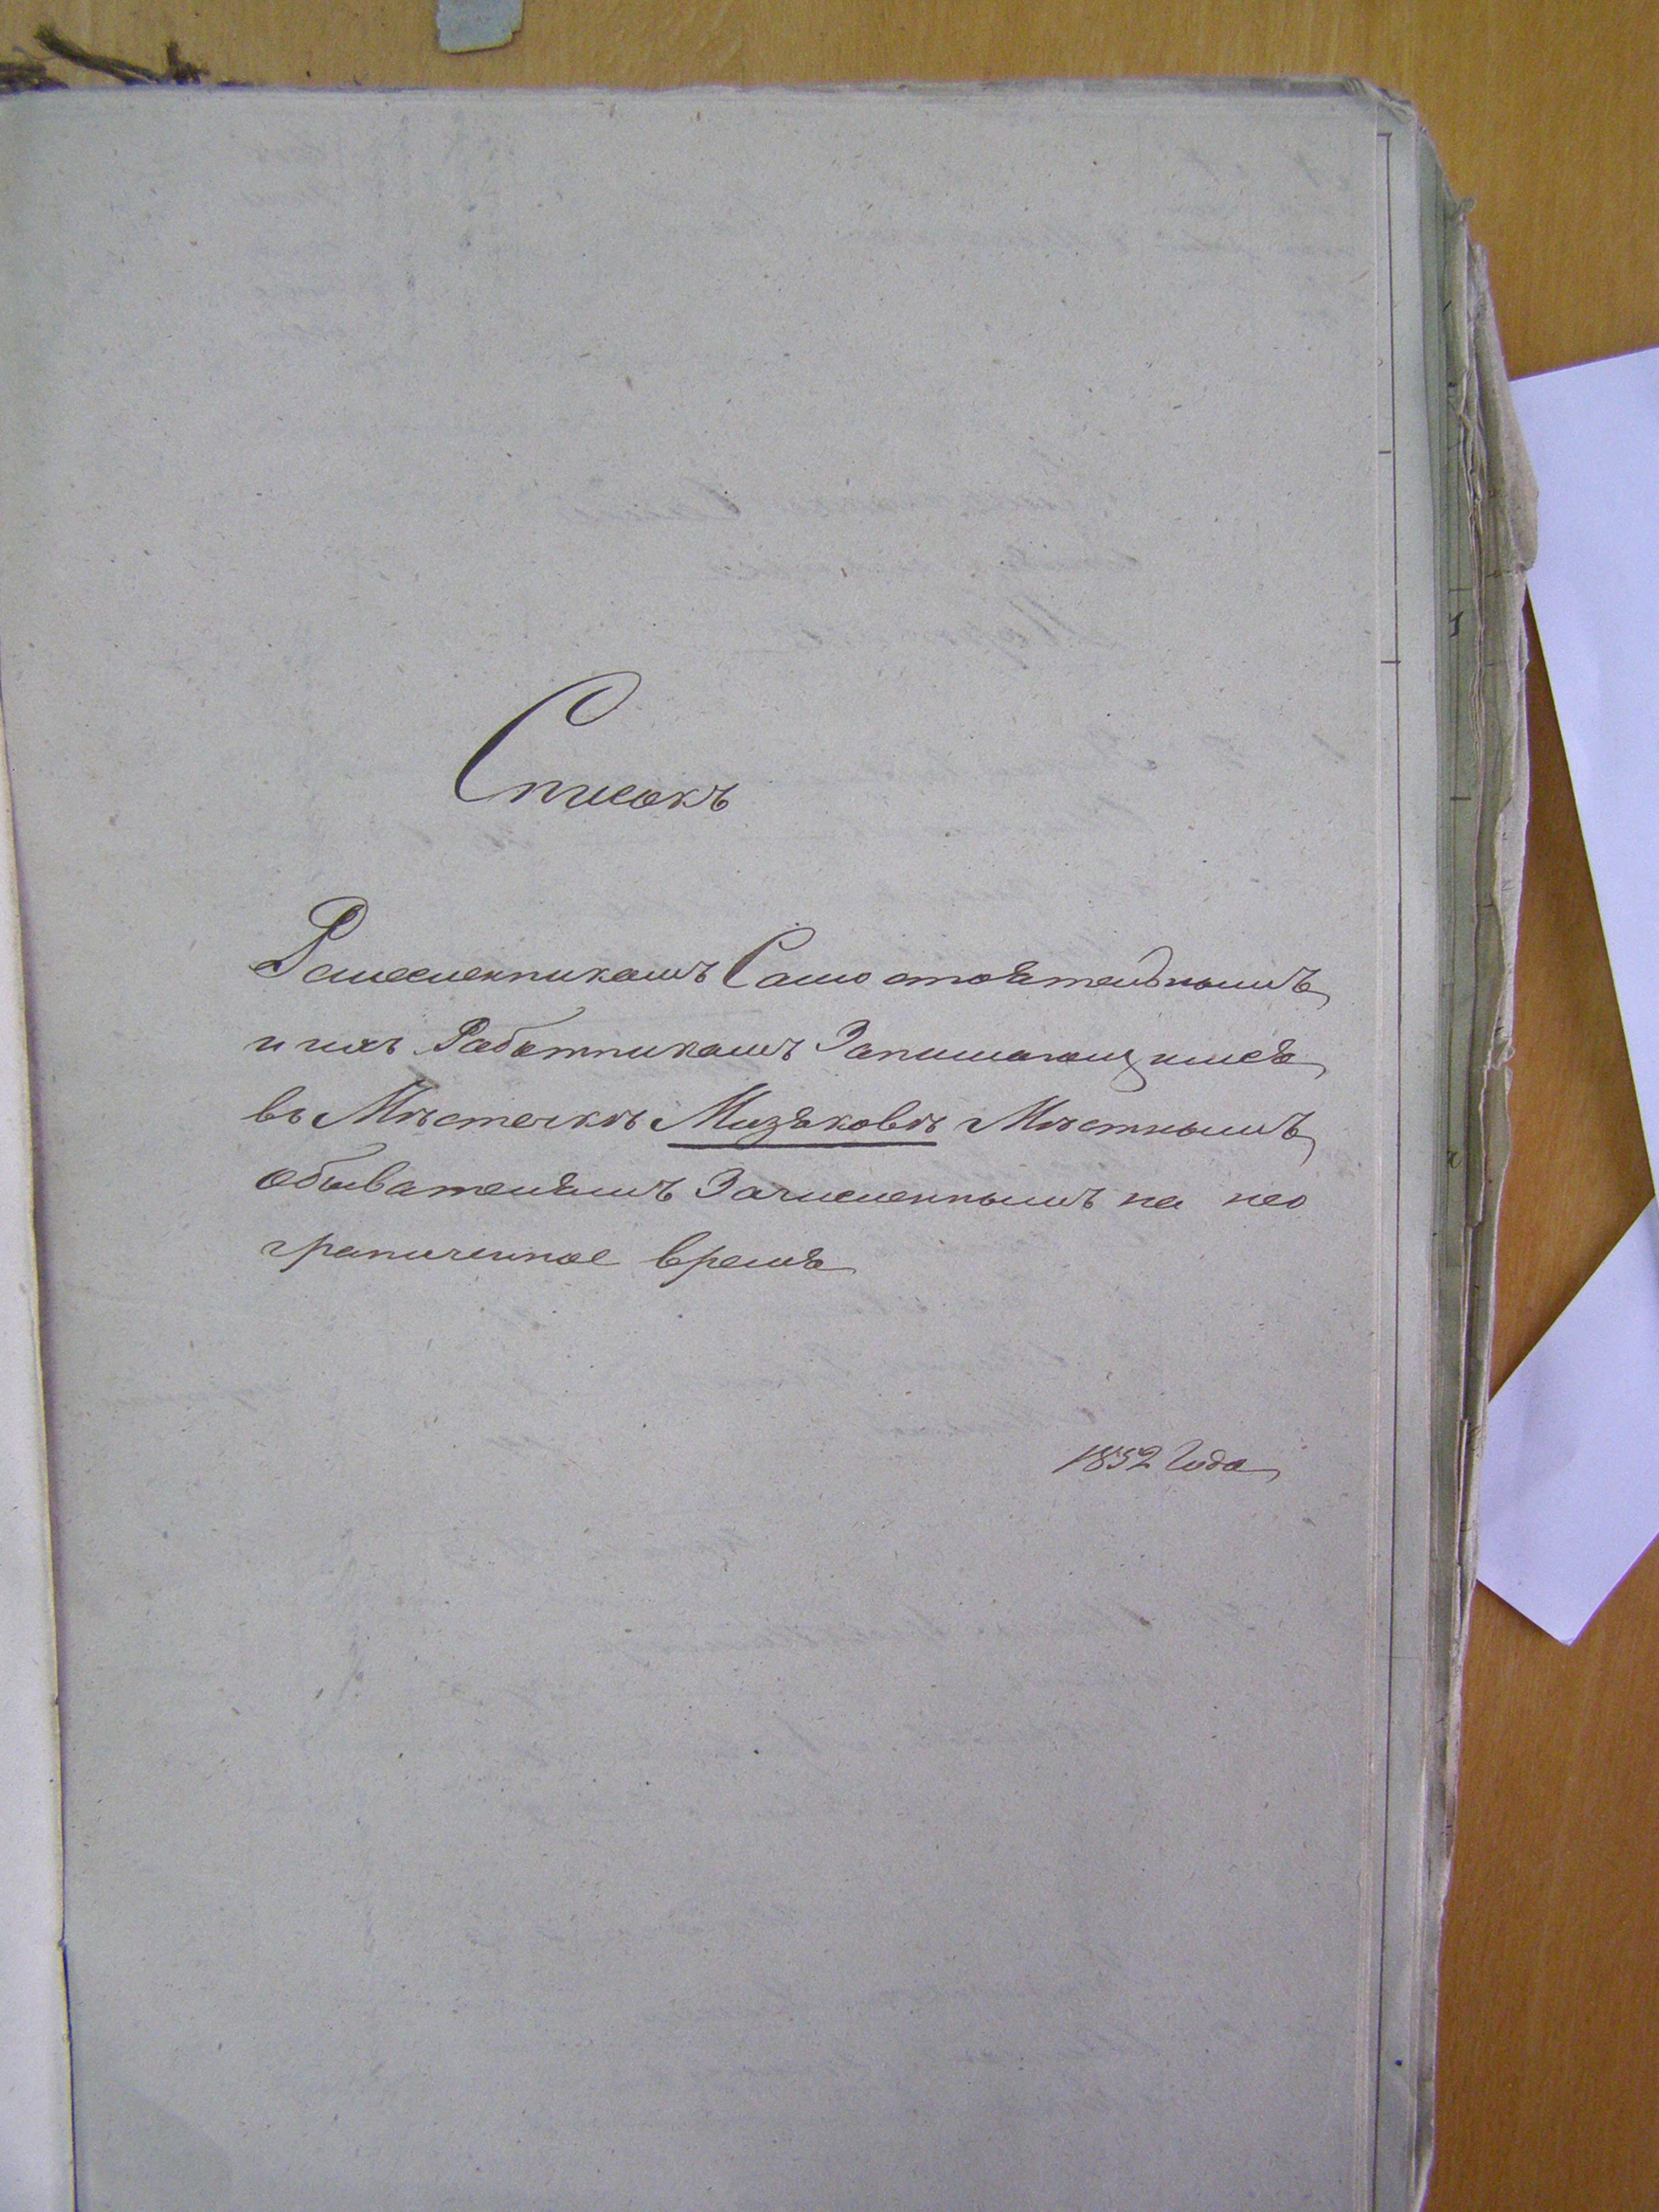 Списокъ
Ремесленникамъ Самостоятельнымъ
и ихъ Работникамъ Занимающимся
въ Мѣстечкѣ Мизяковѣ Мѣстнымъ
обывателямъ Зачисленнымъ на нео
граниченное время
1852 Года